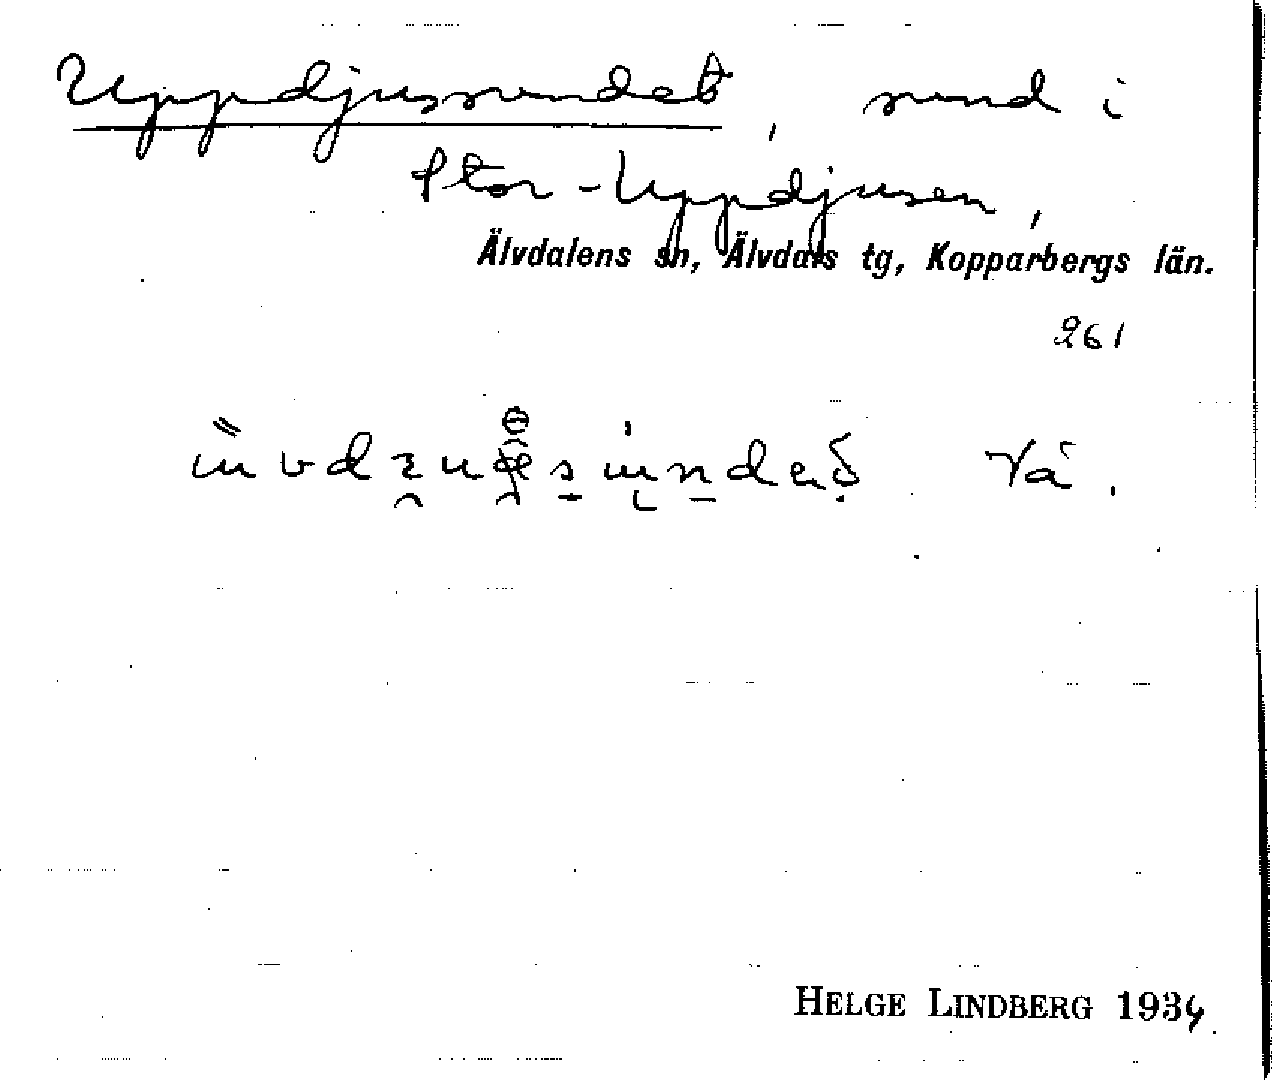 Uppdjussundet, sund i
Stor-Uppdjusen,
Älvdalens sn, Älvdals tg, Kopparbergs län.
261
Vå.
HELGE LINDBERG 1934